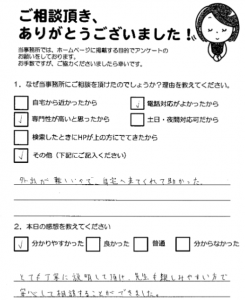 ご相談頂き、
ありがとうございました!
当事務所では、ホームページに掲載する目的でアンケートの
お願いをしております。
お手数ですが、ご協力くださいましたら幸いです。
1、なぜ当事務所にご相談を頂けたのでしょうか?理由を教えてください。
自宅から近かったから
✓ 電話対応がよかったから
✓ 専門性が高いと思ったから
土日・夜間対応可だから
検索したときにHPが上の方にでてきたから
✓ その他(下記にご記入ください)
外出が難しいので、自宅へ来てくれて助かった。
2、本日の感想を教えてください
✓ 分かりやすかった
良かった
普通
分からなかった
とても丁寧に説明して頂き、先生も親しみやすい方で
安心して相談することができました。